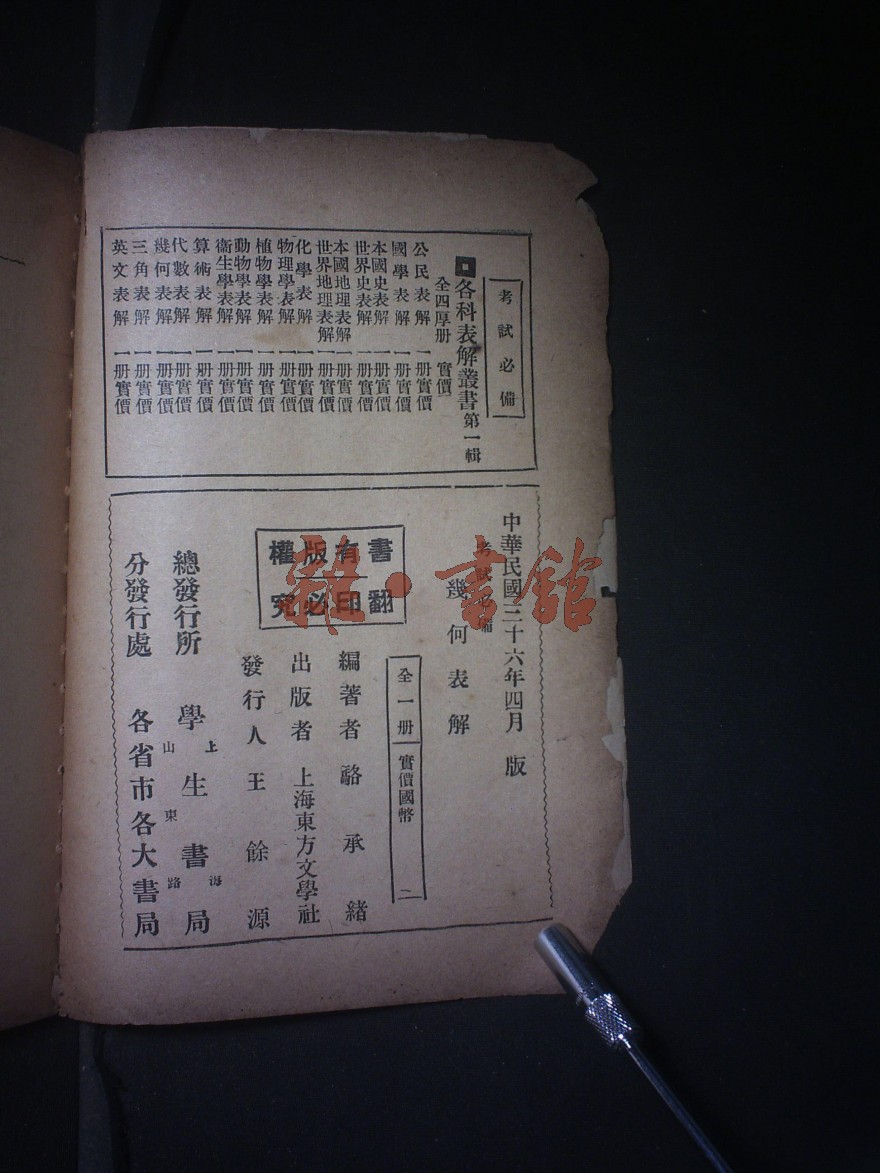 考試必備
各科表解叢書第一輯
全四厚册 實價
公民表解 一册實價
國學表解 一册實價
本國史表解 一册實價
世界史表解 一册實價
本國地理表解 一册實價
世界地理表解 一册實價
化學表解 一册實價
物理學表解 一册實價
植物學表解 一册實價
動物學表解 一册實價
衞生學表解 一册實價
算術表解 一册實價
代數表解 一册實價
幾何表解 一册實價
三角表解 一册實價
英文表解 一册實價
中華民國三十六年四月 版
考試必備
幾何表解
全一册 實價國幣
書有版權
翻印必究
編著者 駱承緒
出版者 上海東方文學社
發行人 王餘源
總發行所 學生書局
上海
山東路
分發行處 各省市各大書局
雜·書館